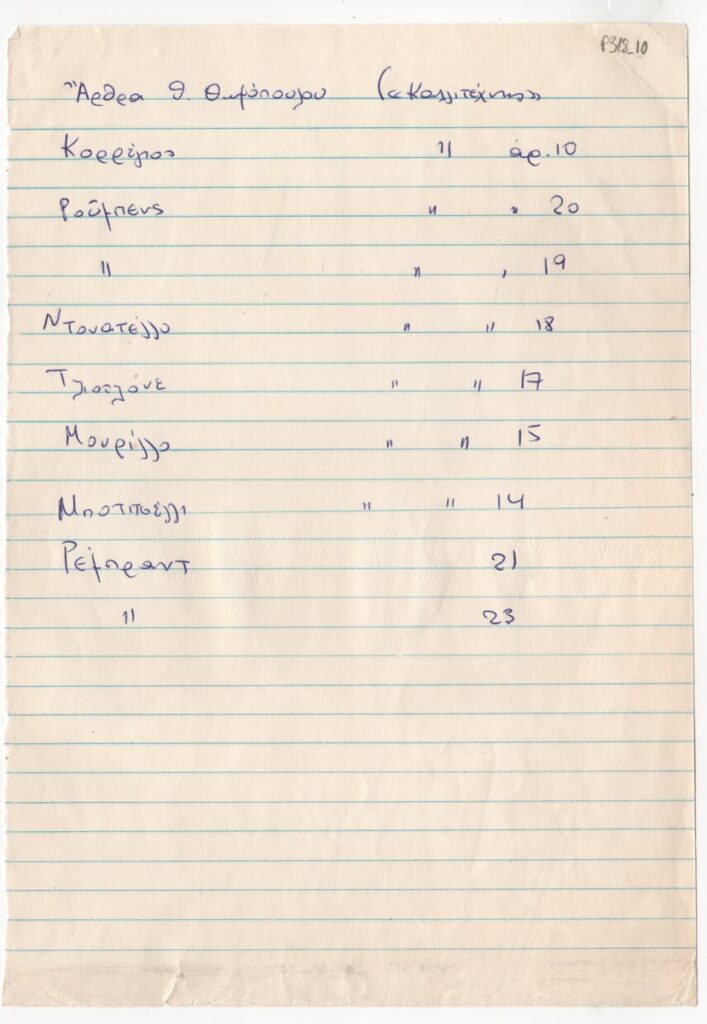 F318_10
Ἄρθρα Θ. Θωμόπουλου («Καλλιτέχνης»
Κορρέγιος " ἀρ. 10
Ροῦμπενς " " 20
" " , 19
Ντονατέλλο " " 18
" " 17
Μουρίλλο " " 15
Μποτιτσέλλι " " 14
Ρέμπραντ 21
" 23